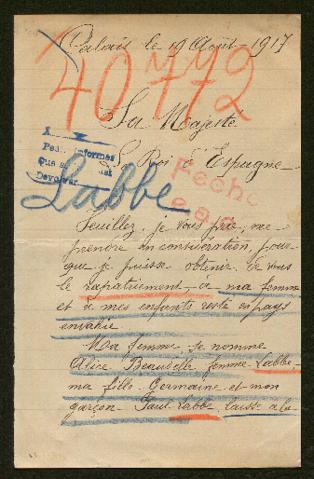 Palais le 19 Août 1917
40772
Sa Majesté
Le Roi d'Espagne
Labbe
Fecho
Veuillez, je vous prie, me
prendre en considération, pour
que je puisse obtenir de vous
le rapatriement à ma femme
et à mes enfants resté en pays
envahie
Ma femme se nomme
Alice Beauselle femme Labbe
ma fille Germaine et mon
garçon Paul Labbe laissé à la